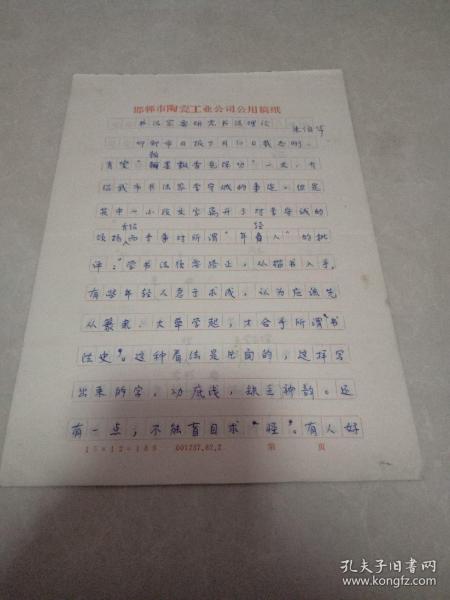 邯郸市陶瓷工业公司公用稿纸
书法家要研究书法理论
朱伯华
邯郸市日报5月10日载志明、
青堂"翰墨数香见深功"一文,介
绍我市书法家李守诚的事迹。但是
其中一小段文字离开了对李守诚的
颂扬而介绍人手事对所谓"年轻人"的批
评:"学书法须要路正,从楷书入手,
有些年轻人急于求成,认为应该先
从篆隶、大草学起,才合乎所谓"书
法史"。这种看法是片面的,这样写
出来的字,功底浅,缺乏神韵。还
有一点,不能盲目求"怪"。有人好
15×12=180 001737.82.2 第 页
孔夫子旧书网
www.kongfz.com